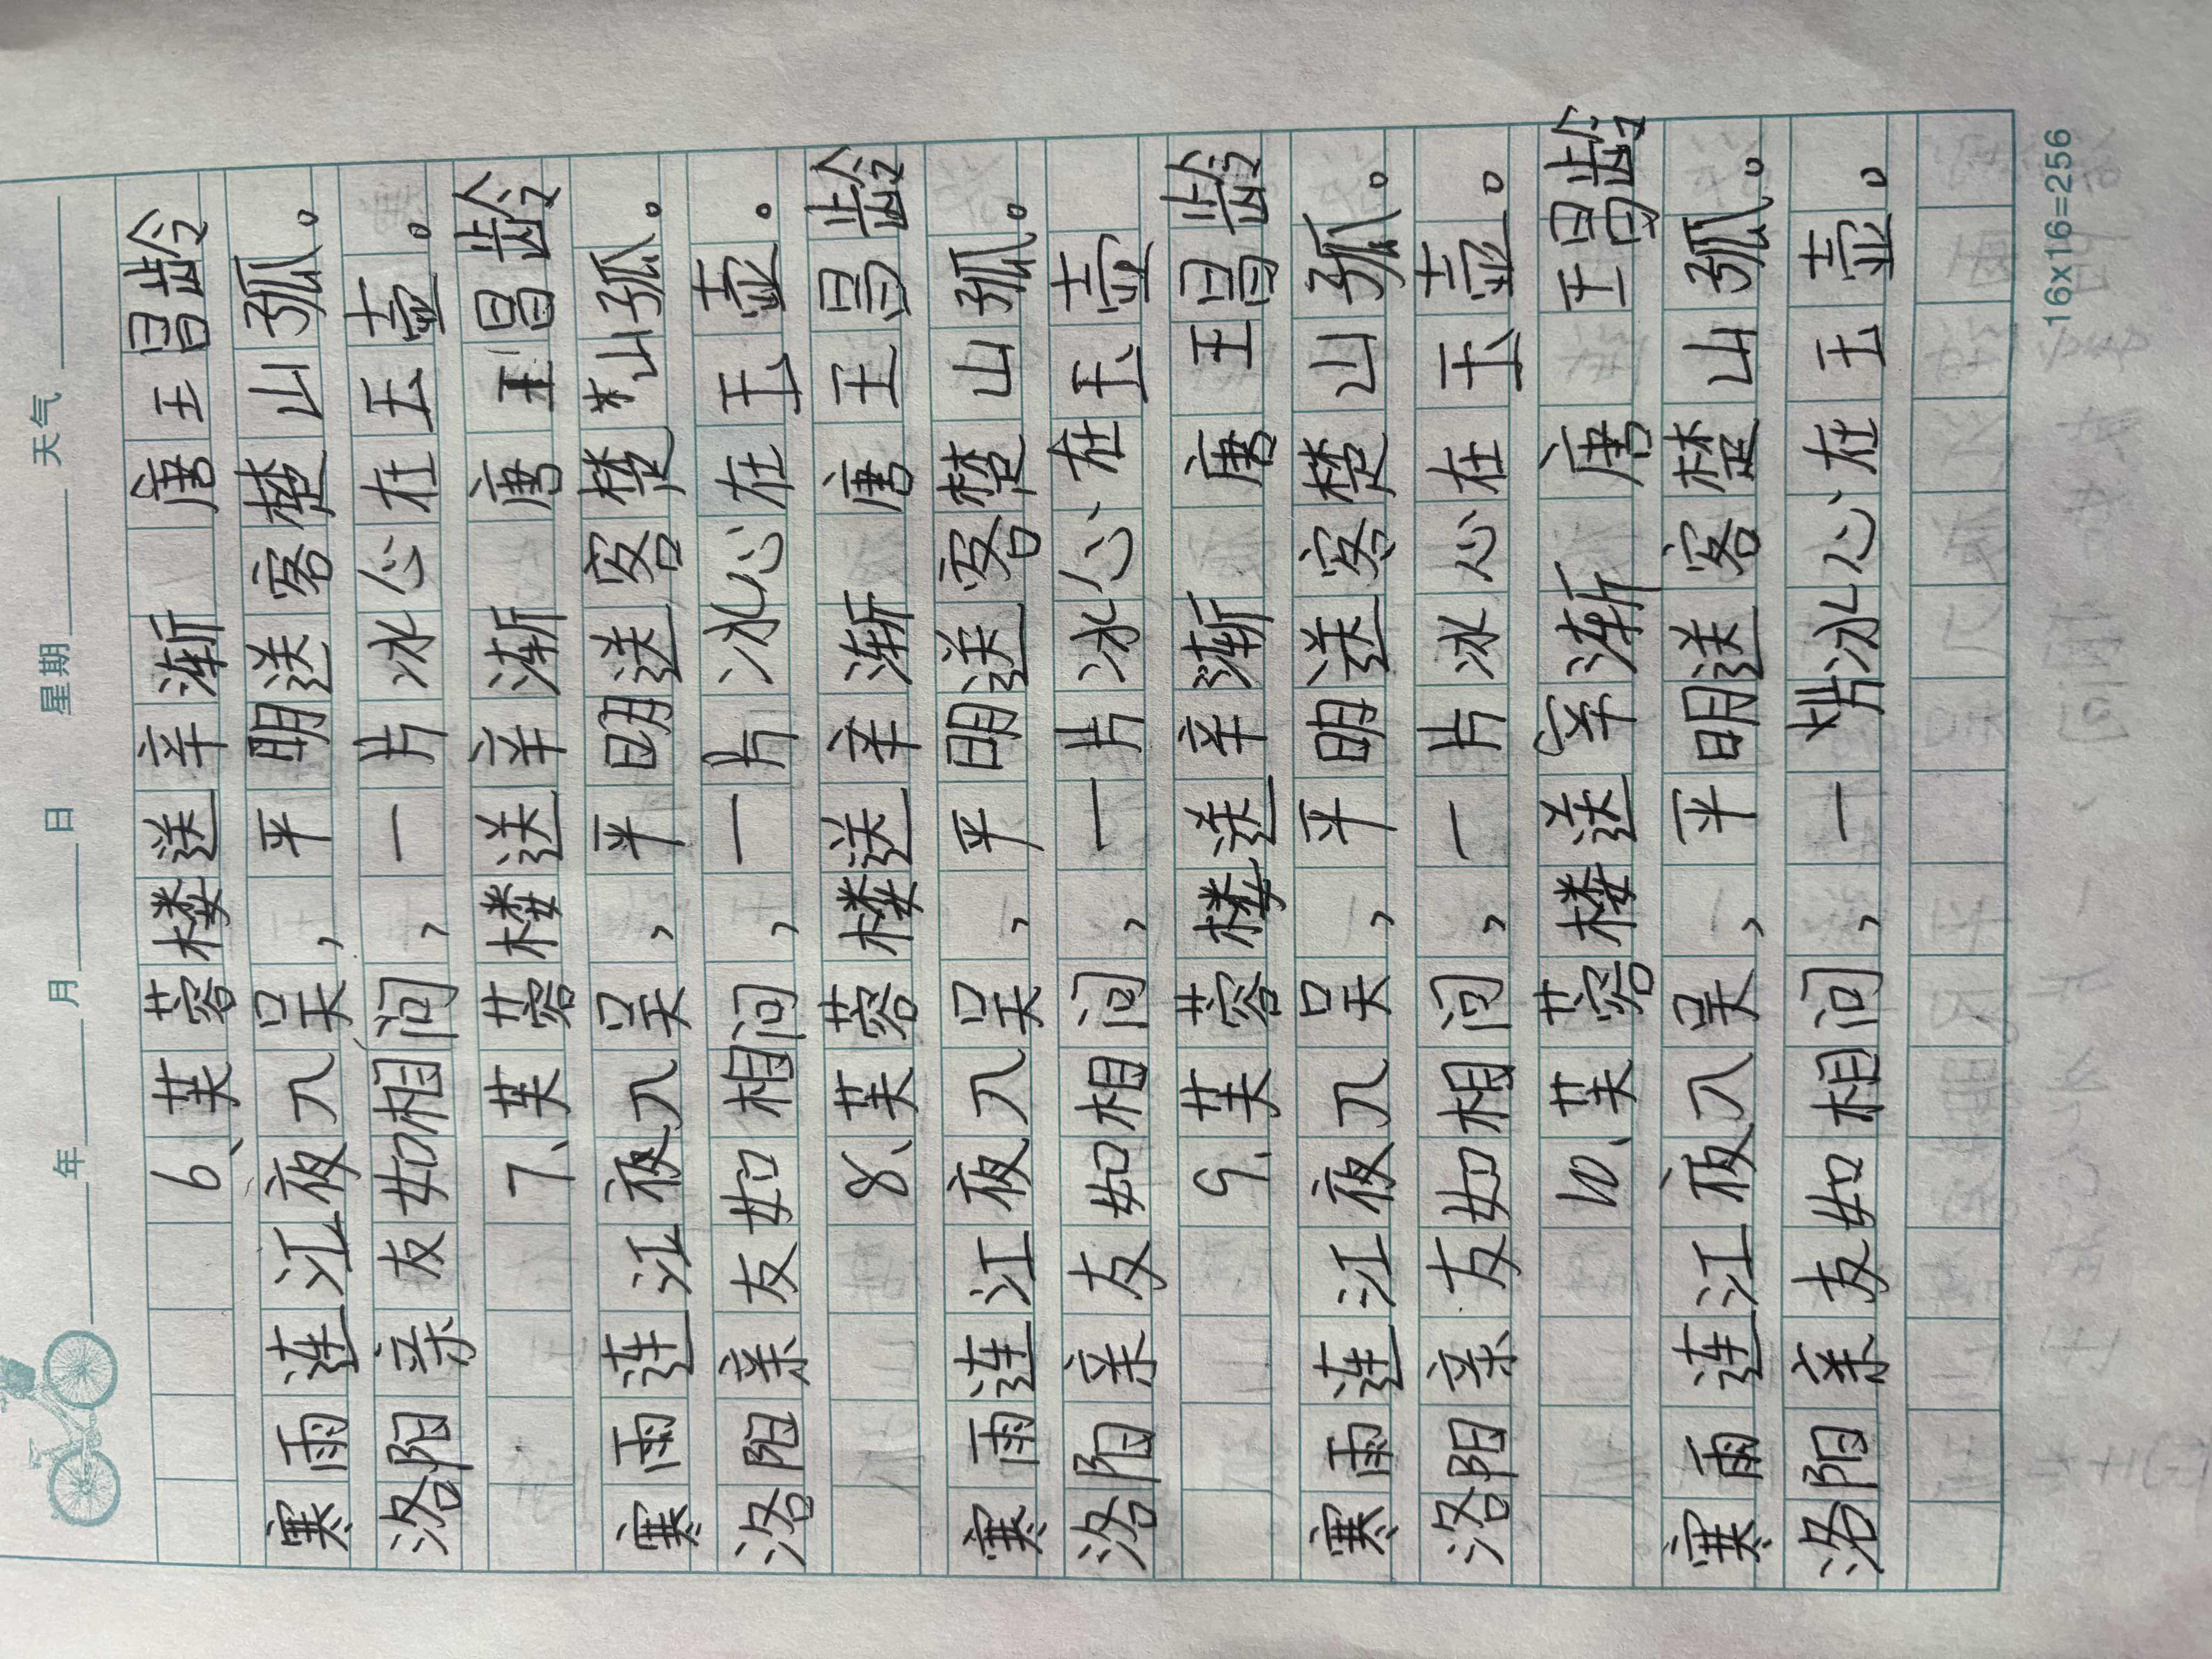 年 月 日 星期 天气
6、芙蓉楼送辛渐 唐 王昌龄
寒雨连江夜入吴，平明送客楚山孤。
洛阳亲友如相问，一片冰心在玉壶。
7、芙蓉楼送辛渐 唐 王昌龄
寒雨连江夜入吴，平明送客楚山孤。
洛阳亲友如相问，一片冰心在玉壶。
8、芙蓉楼送辛渐 唐 王昌龄
寒雨连江夜入吴，平明送客楚山孤。
洛阳亲友如相问，一片冰心在玉壶
9、芙蓉楼送辛渐 唐 王昌龄
寒雨连江夜入吴，平明送客楚山孤。
洛阳亲友如相问，一片冰心在玉壶。
10、芙蓉楼送辛渐 唐 王昌龄
寒雨连江夜入吴，平明送客楚山孤。
洛阳亲友如相问，一片冰心在玉壶。
16x16=256